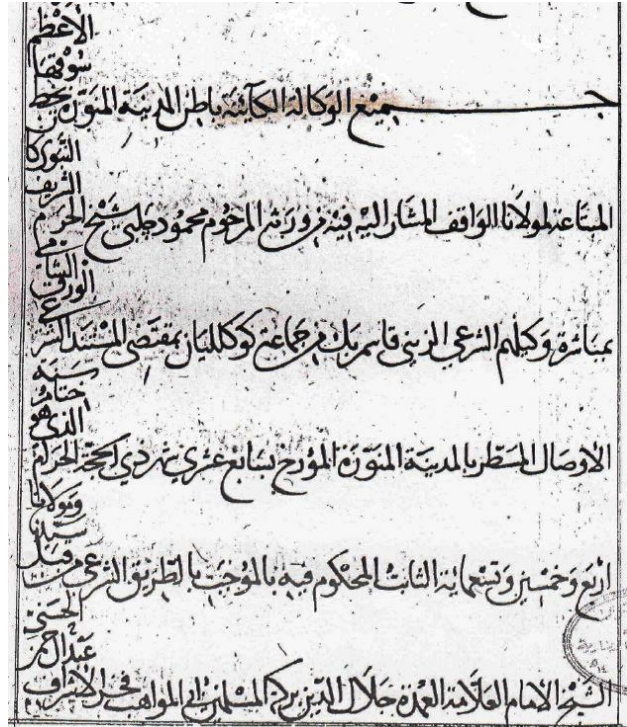 جميع الوكالة الكائنة باطن المدينة المنورة بخط سوقها الأعظم
المبتاعة لمولانا الواقف المشار اليه فيه من ورثة المرحوم محمود چلبي شيخ الحرم الشريف النبوي كا
بمباشرة وكيلهم الشرعي الزيني قاسم بك من جماعة كوكلليان بمقتضى المستند الشرعي الشامي الورق
الاوصال المسطر بالمدينة المنورة المؤرخ بسابع عشري شهر ذي الحجة الحرام الذي هو ختام سنة
اربع وخمسين وتسعمائة الثابت المحكوم فيه بالموجب بالطريق الشرعي من قبل سيدنا ومولانا
الشيخ الامام العلامة العمدة جلال الدين بركة المسلمين ابي المواهب فخر الاشراف عبد الرحمن الحسني